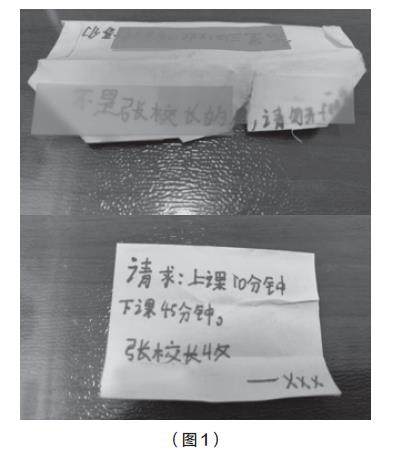 不是张校长的
，请勿开
请求：上课10分钟
下课45分钟。
张校长收
——XXX
（图1）